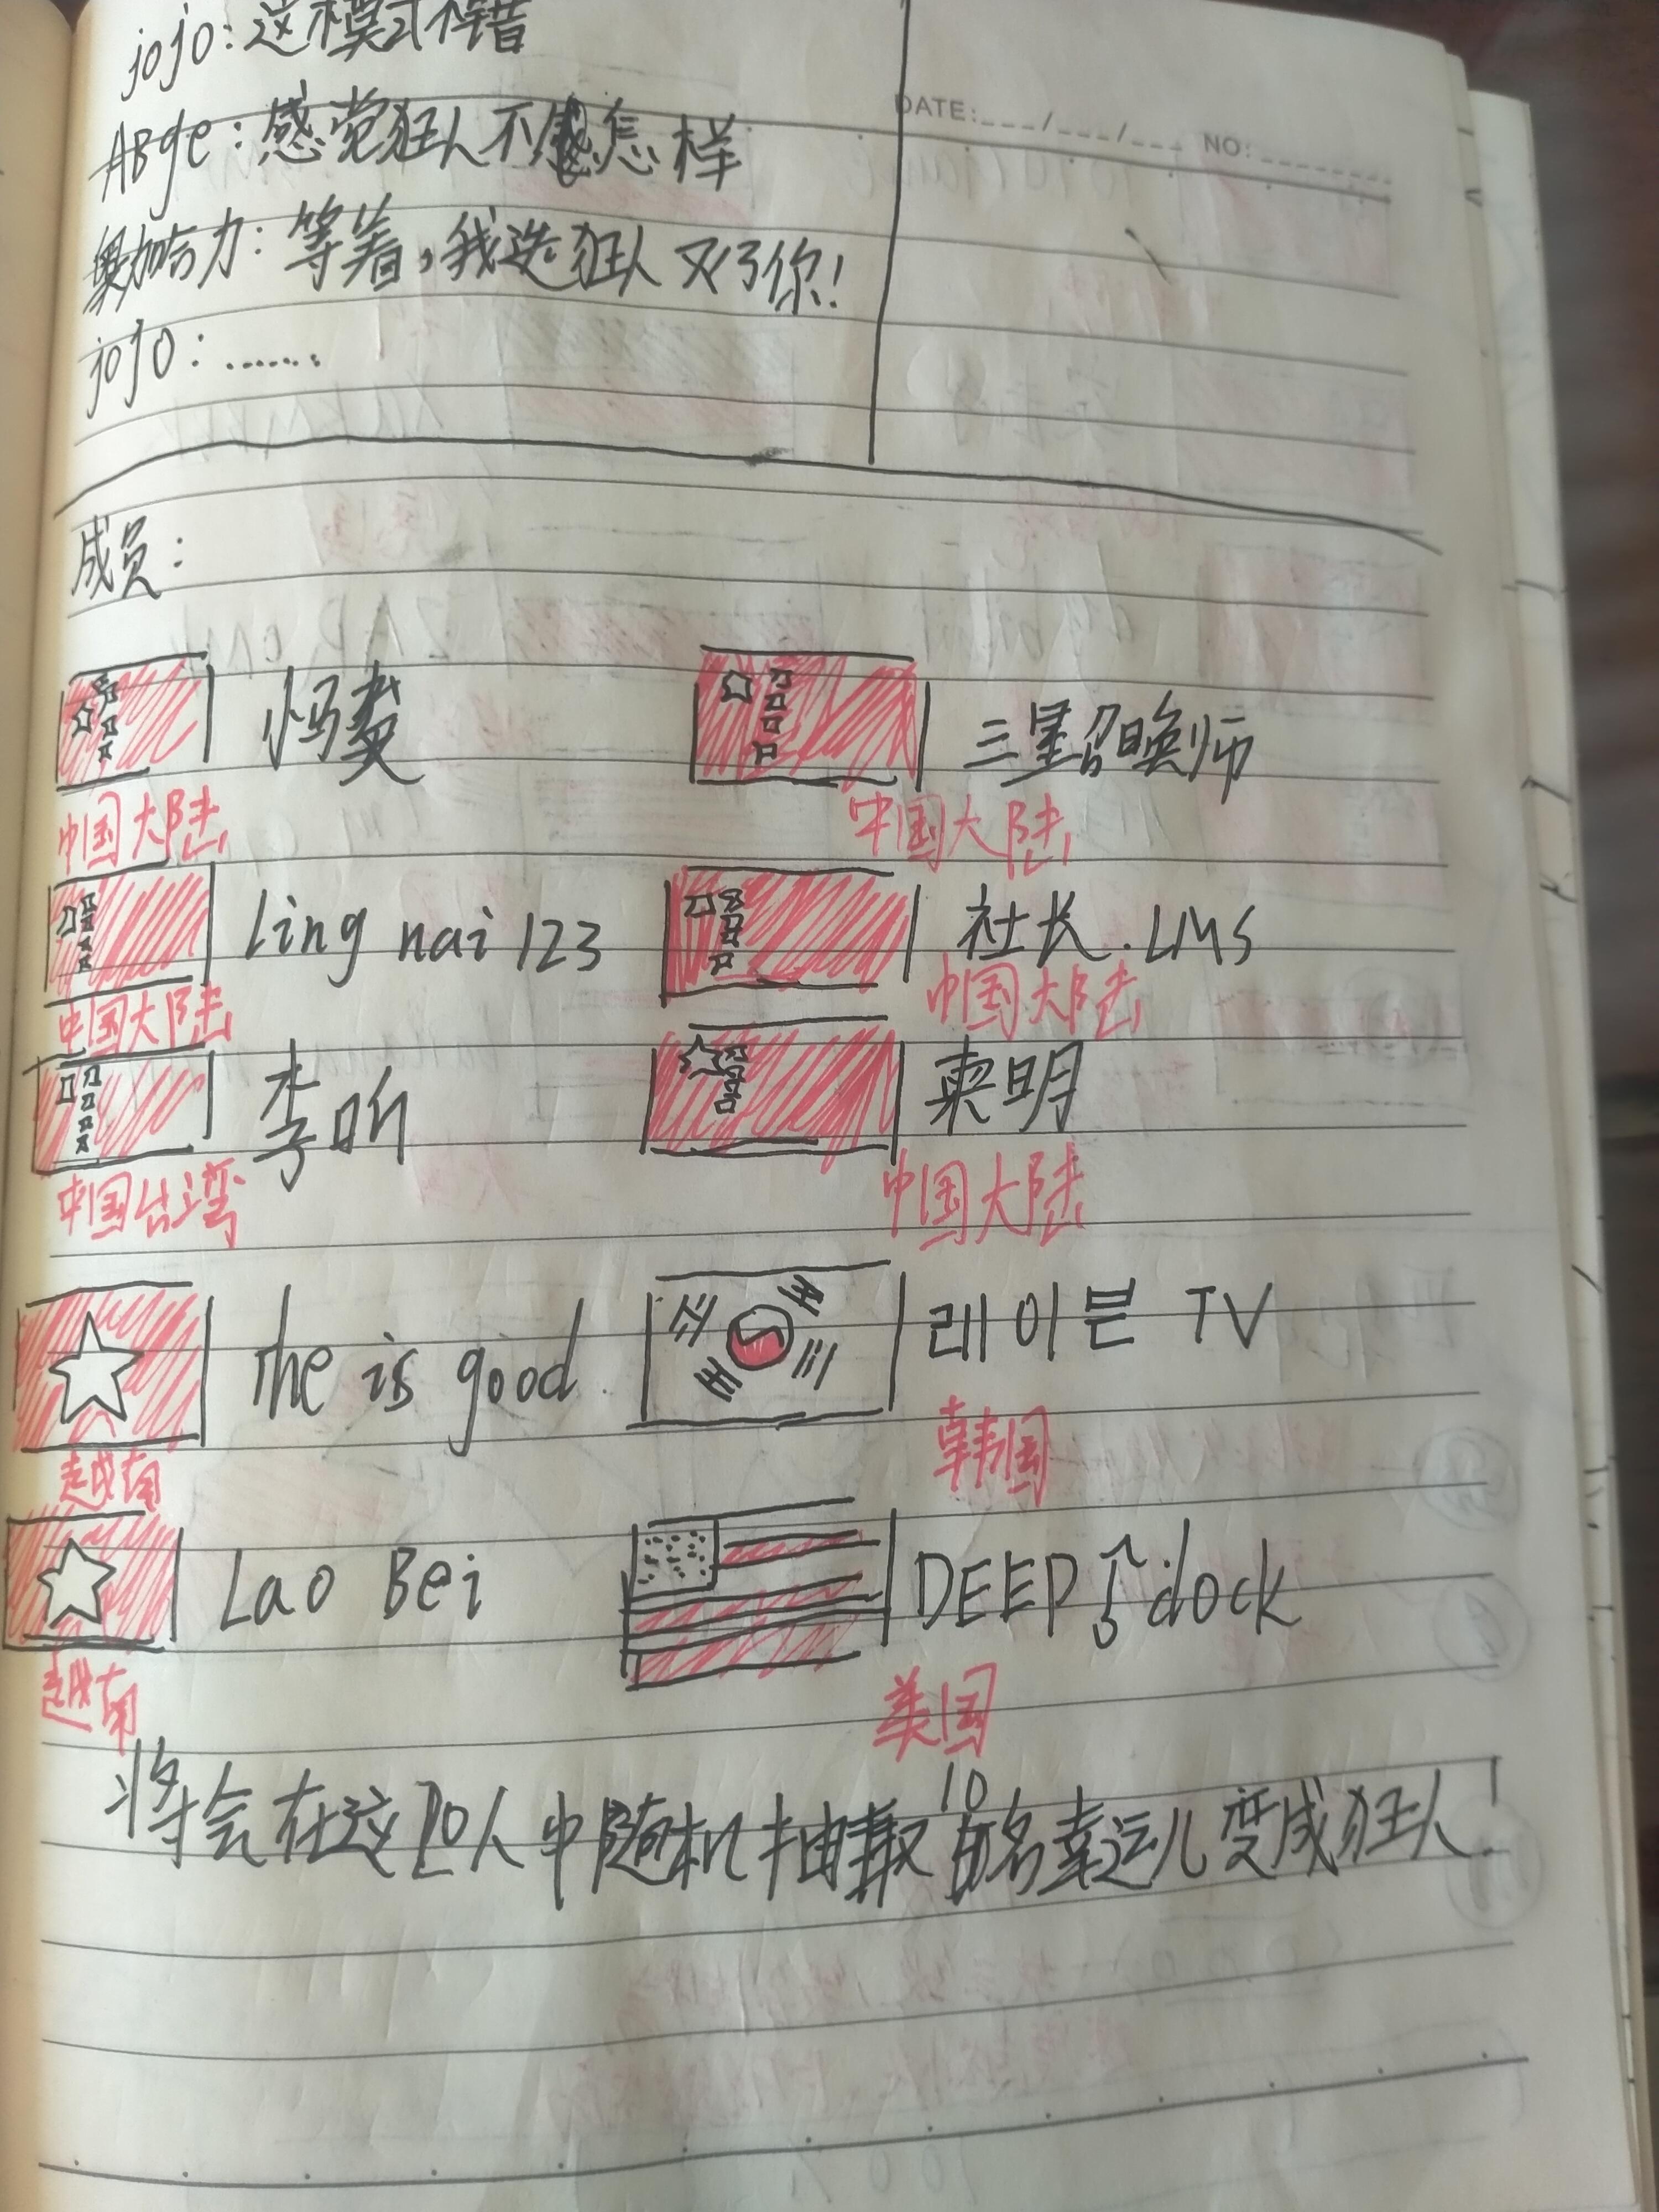 jojo：这模式不错
DATE:___/___/___ NO:______
ABge：感觉狂人不怎样
奥加哈力：等着，我选狂人又了你！
jojo：……
成员：
三星召唤师
中国大陆 中国大陆
Ling nai 123 社长.LMS
中国大陆 中国大陆
李昕 束明
中国台湾 中国大陆
The is good 레이븐 TV
越南 韩国
Lao Bei DEEP dock
越南 美国
将会在这20人中随机抽取10名幸运儿变成狂人！